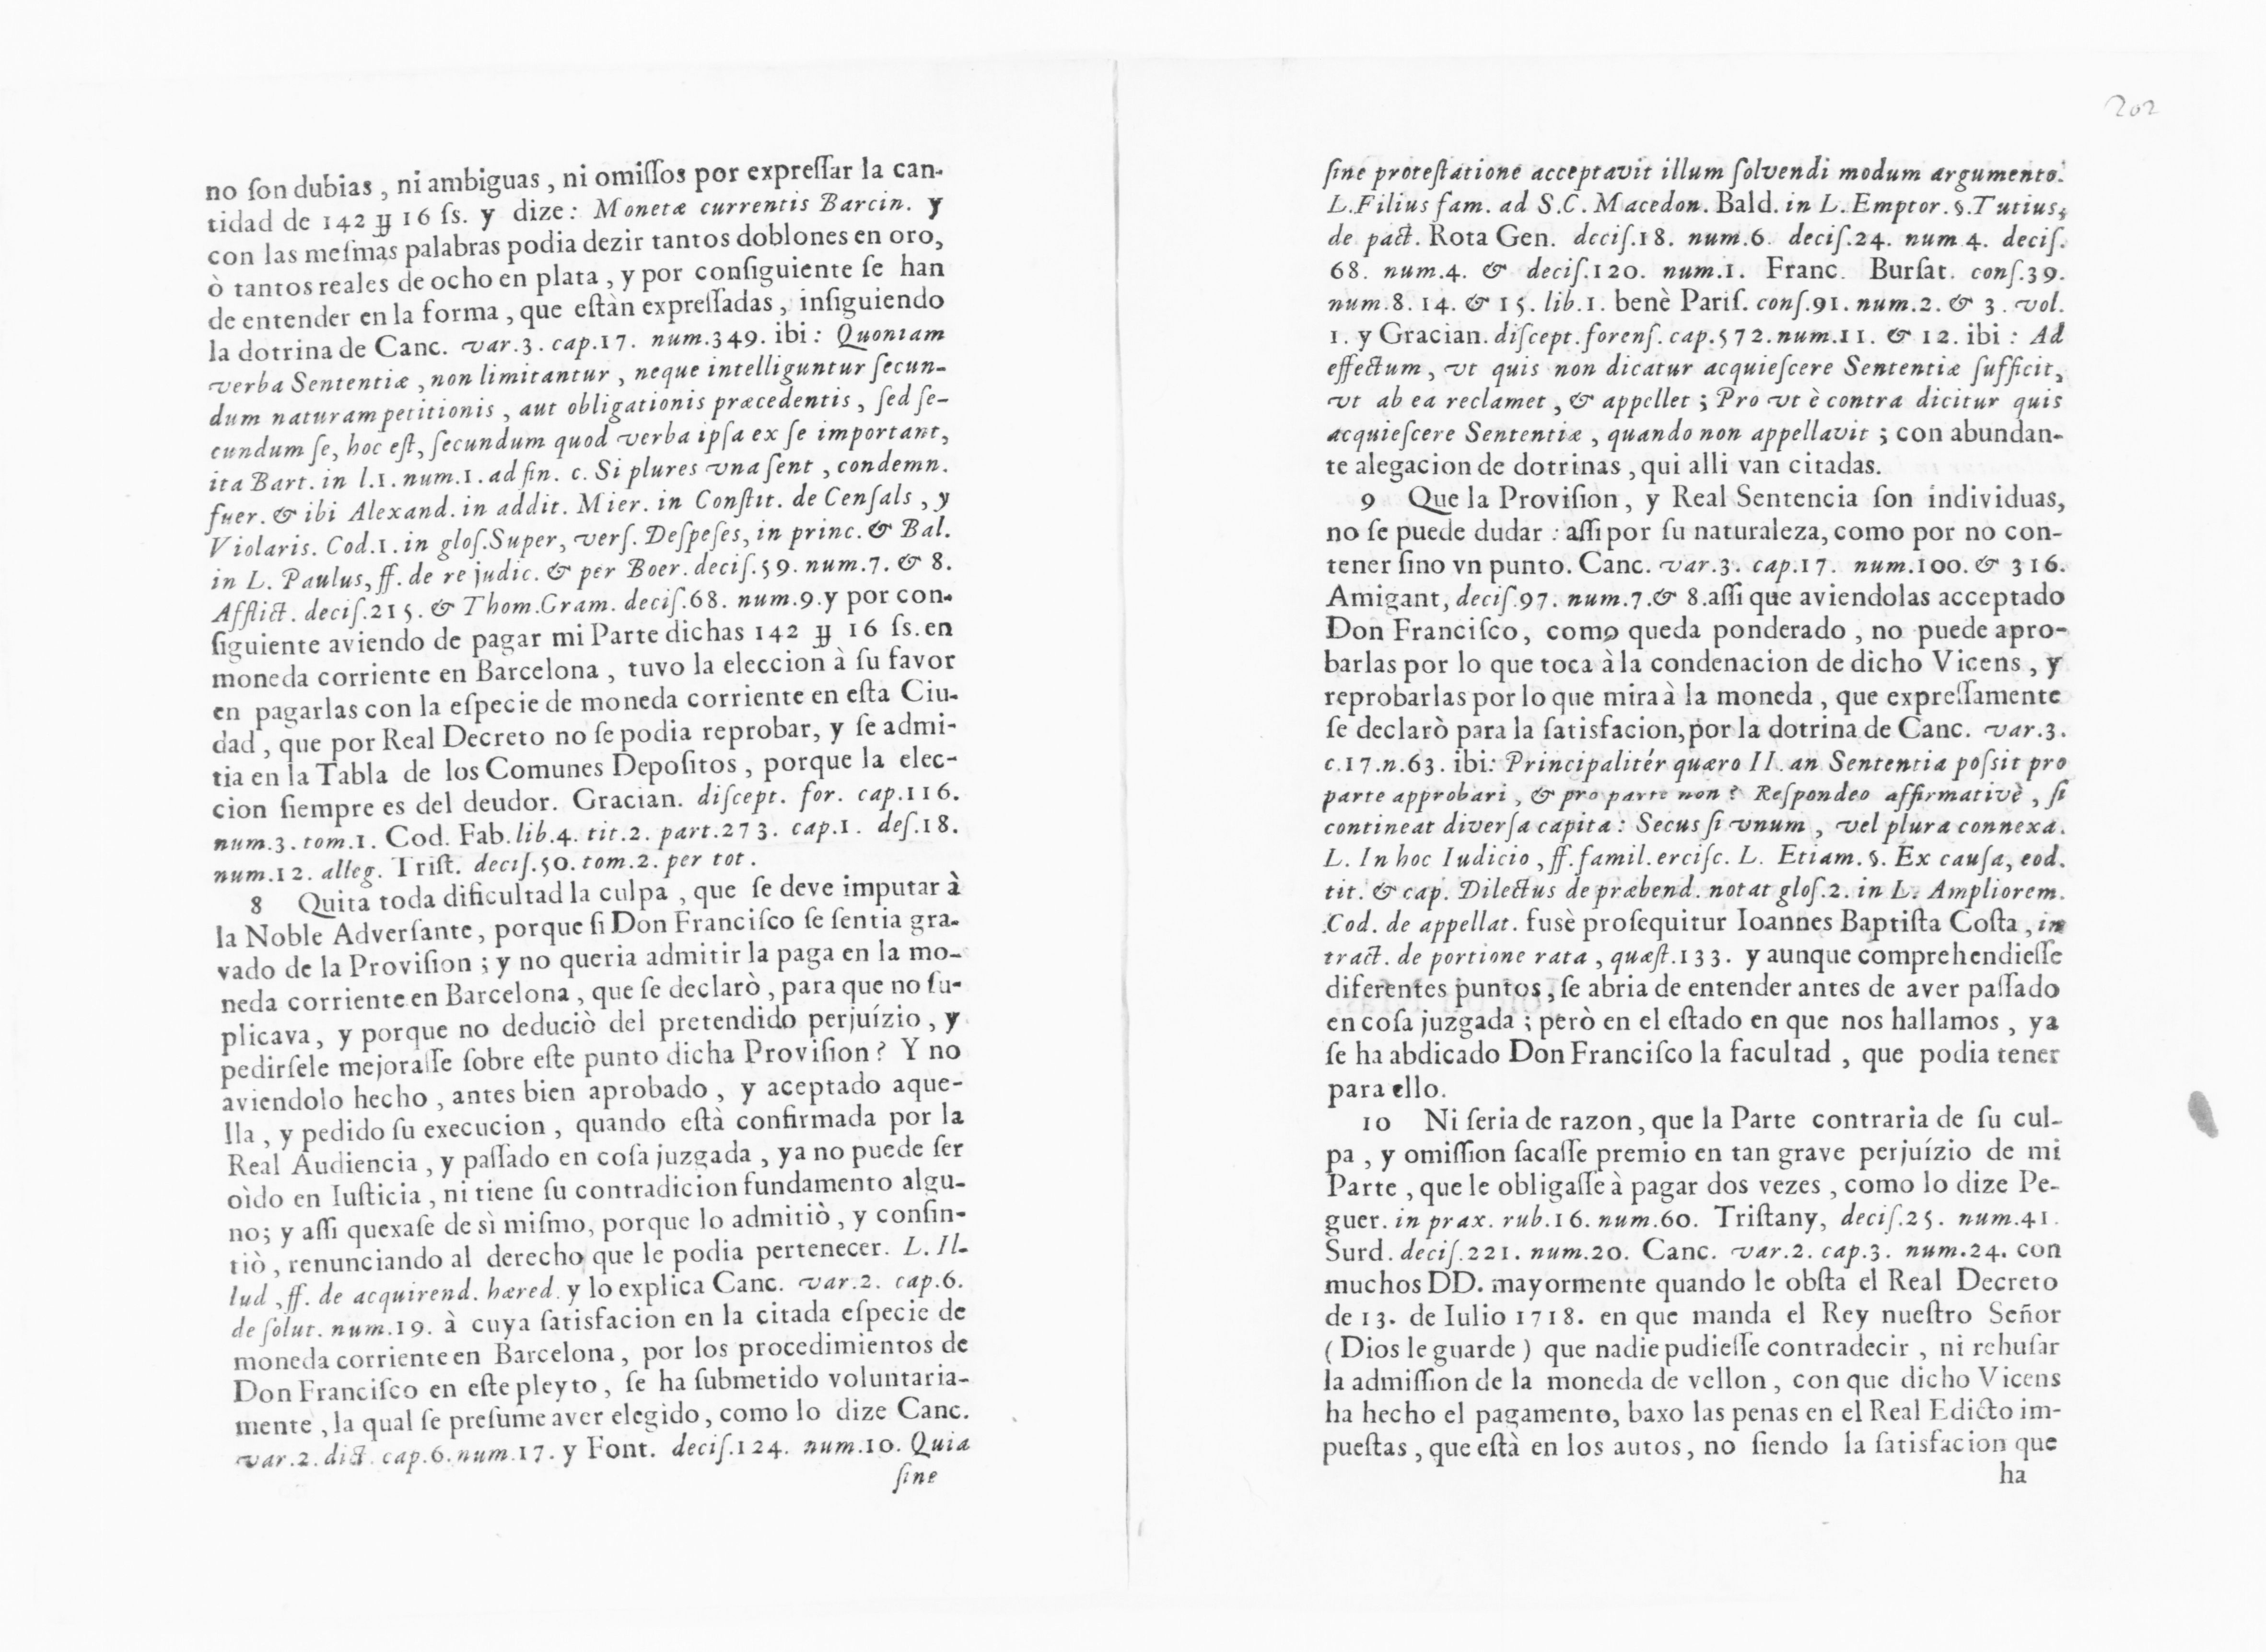 no ſon dubias , ni ambiguas , ni omiſſos por expreſſar la can-
tidad de 142 ұ 16 ſs. y dize : Monetæ currentis Barcin. y
con las meſmas palabras podia dezir tantos doblones en oro,
ò tantos reales de ocho en plata , y por conſiguiente ſe han
de entender en la forma , que eſtàn expreſſadas , inſiguiendo
la dotrina de Canc. var.3. cap.17. num.349. ibi : Quoniam
verba Sententiæ , non limitantur , neque intelliguntur ſecun-
dum naturam petitionis , aut obligationis præcedentis , ſed ſe-
cundum ſe, hoc eſt, ſecundum quod verba ipſa ex ſe important,
ita Bart. in l.1. num.1. ad fin. c. Si plures vna ſent , condemn.
fuer. & ibi Alexand. in addit. Mier. in Conſtit. de Cenſals , y
Violaris. Cod.1. in gloſ.Super, verſ. Deſpeſes, in princ. & Bal.
in L. Paulus, ff. de re judic. & per Boer. deciſ.59. num.7. & 8.
Afflict. deciſ.215. & Thom.Gram. deciſ.68. num.9. y por con-
ſiguiente aviendo de pagar mi Parte dichas 142 ұ 16 ſs. en
moneda corriente en Barcelona , tuvo la eleccion à ſu favor
en pagarlas con la eſpecie de moneda corriente en eſta Ciu-
dad , que por Real Decreto no ſe podia reprobar, y ſe admi-
tia en la Tabla de los Comunes Depoſitos , porque la elec-
cion ſiempre es del deudor. Gracian. diſcept. for. cap.116.
num.3. tom.1. Cod. Fab. lib.4. tit.2. part.273. cap.1. deſ.18.
num.12. alleg. Triſt. deciſ.50. tom.2. per tot.
8 Quita toda dificultad la culpa , que ſe deve imputar à
la Noble Adverſante, porque ſi Don Franciſco ſe ſentia gra-
vado de la Proviſion ; y no queria admitir la paga en la mo-
neda corriente en Barcelona , que ſe declarò , para que no ſu-
plicava, y porque no deduciò del pretendido perjuízio , y
pedirſele mejoraſſe ſobre eſte punto dicha Proviſion ? Y no
aviendolo hecho , antes bien aprobado , y aceptado aque-
lla , y pedido ſu execucion , quando eſtà confirmada por la
Real Audiencia , y paſſado en coſa juzgada , ya no puede ſer
oìdo en Iuſticia , ni tiene ſu contradicion fundamento algu-
no; y aſſi quexaſe de sì miſmo, porque lo admitiò , y conſin-
tiò , renunciando al derecho que le podia pertenecer. L. Il-
lud , ff. de acquirend. hæred. y lo explica Canc. var.2. cap.6.
de ſolut. num.19. à cuya ſatisfacion en la citada eſpecie de
moneda corriente en Barcelona , por los procedimientos de
Don Franciſco en eſte pleyto , ſe ha ſubmetido voluntaria-
mente , la qual ſe preſume aver elegido , como lo dize Canc.
var.2. dict. cap.6. num.17. y Font. deciſ.124. num.10. Quia
ſine
202
ſine proteſtatione acceptavit illum ſolvendi modum argumento.
L.Filius fam. ad S.C. Macedon. Bald. in L. Emptor. §.Tutius,
de pact. Rota Gen. deciſ.18. num.6. deciſ.24. num.4. deciſ.
68. num.4. & deciſ.120. num.1. Franc. Burſat. conſ.39.
num.8. 14. & 15. lib.1. benè Pariſ. conſ.91. num.2. & 3. vol.
1. y Gracian. diſcept. forenſ. cap.572. num.11. & 12. ibi : Ad
effectum , vt quis non dicatur acquieſcere Sententiæ ſufficit,
vt ab ea reclamet , & appellet ; Pro vt è contra dicitur quis
acquieſcere Sententiæ , quando non appellavit ; con abundan-
te alegacion de dotrinas , qui alli van citadas.
9 Que la Proviſion, y Real Sentencia ſon individuas,
no ſe puede dudar : aſſi por ſu naturaleza, como por no con-
tener ſino vn punto. Canc. var.3. cap.17. num.100. & 316.
Amigant, deciſ.97. num.7. & 8. aſſi que aviendolas acceptado
Don Franciſco, como queda ponderado , no puede apro-
barlas por lo que toca à la condenacion de dicho Vicens , y
reprobarlas por lo que mira à la moneda , que expreſſamente
ſe declarò para la ſatisfacion, por la dotrina de Canc. var.3.
c.17.n.63. ibi: Principalitér quæro II. an Sententia poſsit pro
parte approbari , & pro parte non ? Reſpondeo affirmativè , ſi
contineat diverſa capita : Secus ſi vnum , vel plura connexa.
L. In hoc Iudicio , ff. famil. erciſc. L. Etiam. §. Ex cauſa, eod.
tit. & cap. Dilectus de præbend. notat gloſ.2. in L. Ampliorem.
Cod. de appellat. fusè proſequitur Ioannes Baptiſta Coſta , in
tract. de portione rata , quæſt.133. y aunque comprehendieſſe
diferentes puntos , ſe abria de entender antes de aver paſſado
en coſa juzgada ; però en el eſtado en que nos hallamos , ya
ſe ha abdicado Don Franciſco la facultad , que podia tener
para ello.
10 Ni ſeria de razon , que la Parte contraria de ſu cul-
pa , y omiſſion ſacaſſe premio en tan grave perjuízio de mi
Parte , que le obligaſſe à pagar dos vezes , como lo dize Pe-
guer. in prax. rub.16. num.60. Triſtany, deciſ.25. num.41.
Surd. deciſ.221. num.20. Canc. var.2. cap.3. num.24. con
muchos DD. mayormente quando le obſta el Real Decreto
de 13. de Iulio 1718. en que manda el Rey nueſtro Señor
( Dios le guarde ) que nadie pudieſſe contradecir , ni rehuſar
la admiſſion de la moneda de vellon , con que dicho Vicens
ha hecho el pagamento, baxo las penas en el Real Edicto im-
pueſtas , que eſtà en los autos , no ſiendo la ſatisfacion que
ha